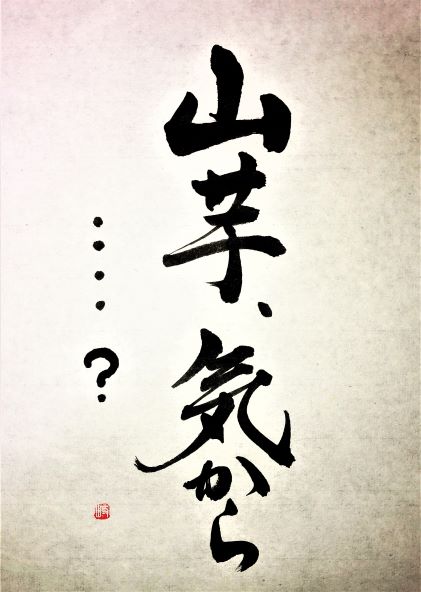 山芋、気から
････?